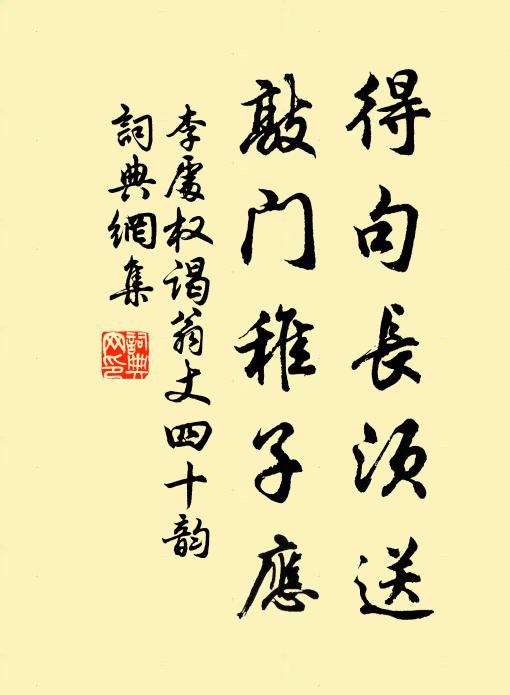 得句長须送
敲门稚子應
李處权谒翁丈四十韵
詞典網集
詞典网印